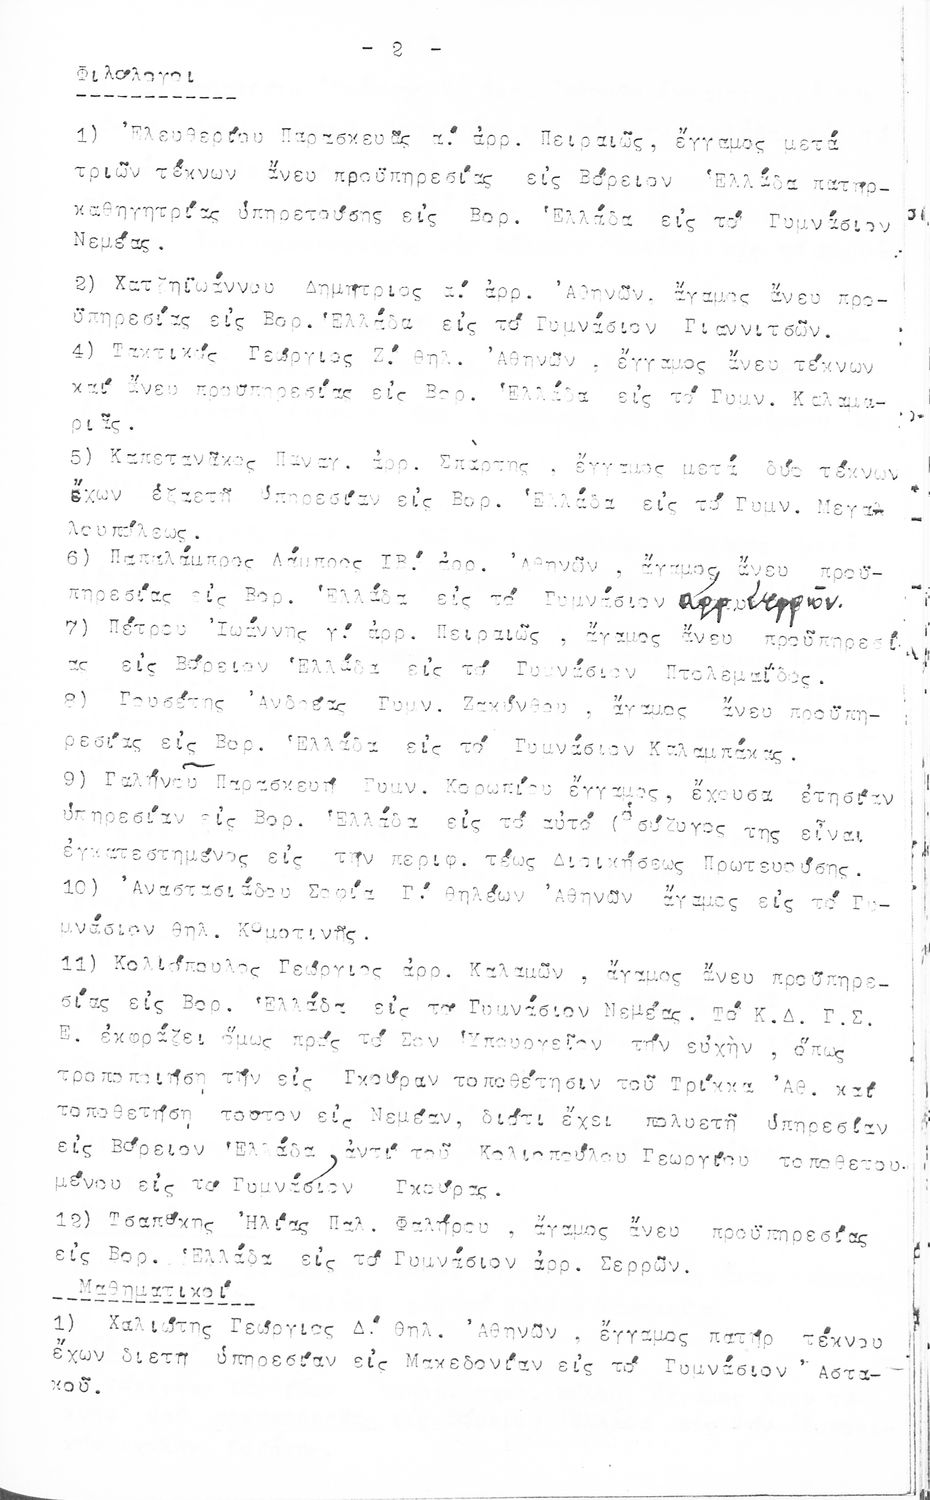 - 2 -
Φιλόλογοι
1) Ἐλευθερίου Παρασκευᾶς α.' ἀρρ. Πειραιῶς, ἔγγαμος μετά
τριῶν τέκνων ἄνευ προϋπηρεσίας εἰς Βόρειον Ἑλλάδα πατήρ-
καθηγητρίας ὑπηρετούσης εἰς Βορ. Ἑλλάδα εἰς τό Γυμνάσιον
Νεμέας.
2) Χατζηϊωάννου Δημήτριος α.' ἀρρ. Ἀθηνῶν. ἄγαμος ἄνευ προ-
ϋπηρεσίας εἰς Βορ. Ἑλλάδα εἰς τό Γυμνάσιον Γιαννιτσῶν.
4) Τακτικός Γεώργιος Ζ.' θηλ. Ἀθηνῶν , ἔγγαμος ἄνευ τέκνων
καί ἄνευ προϋπηρεσίας εἰς Βορ. Ἑλλάδα εἰς τό Γυμν. Καλαμα-
ριᾶς.
5) Καπετανᾶκος Παναγ. ἀρρ. Σπάρτης , ἔγγαμος μετά δύο τέκνων
ἔχων ἑξαετῆ ὑπηρεσίαν εἰς Βορ. Ἑλλάδα εἰς τό Γυμν. Μεγαλ
λουπόλεως.
6) Παπαλάμπρος Λάμπρος ΙΒ.' ἀρρ. Ἀθηνῶν , ἄγαμος ἄνευ προϋ-
πηρεσίας εἰς Βορ. Ἑλλάδα εἰς τό Γυμνάσιον ἀρρ. Σερρῶν.
7) Πέτρου Ἰωάννης γ.' ἀρρ. Πειραιῶς , ἄγαμος ἄνευ προϋπηρεσί
ας εἰς Βόρειον Ἑλλάδα εἰς τό Γυμνάσιον Πτολεμαΐδος.
8) Γουσέτης Ἀνδρέας Γυμν. Ζακύνθου , ἄγαμος ἄνευ προϋπη-
ρεσίας εἰς Βορ. Ἑλλάδα εἰς τό Γυμνάσιον Καλαμπάκας.
9) Γαλήνοῦ Παρασκευή Γυμν. Κορωπίου ἔγγαμος, ἔχουσα ἐτησίαν
ὑπηρεσίαν εἰς Βορ. Ἑλλάδα εἰς τό αὐτό (ὁ σύζυγος της εἶναι
ἐγκατεστημένος εἰς τήν περιφ. τέως Διοικήσεως Πρωτευούσης.
10) Ἀναστασιάδου Σοφία Γ.' θηλέων Ἀθηνῶν ἄγαμος εἰς τό Γυ-
μνάσιον θηλ. Κομοτινῆς.
11) Κολιόπουλος Γεώργιος ἀρρ. Καλαμῶν , ἄγαμος ἄνευ προϋπηρε-
σίας εἰς Βορ. Ἑλλάδα εἰς το Γυμνάσιον Νεμέας. Τό Κ.Δ. Γ.Σ.
Ε. ἐκφράζει ὅμως πρός τό Σον Ὑπουργεῖον τήν εὐχὴν , ὅπως
τροποποιήσῃ τήν εἰς Γκούραν τοποθέτησιν τοῦ Τρίκκα Ἀθ. καί
τοποθετήσῃ τοῦτον εἰς Νεμέαν, διότι ἔχει πολυετῆ ὑπηρεσίαν
εἰς Βόρειον Ἑλλάδα ,ἀντί τοῦ Κολιοπούλου Γεωργίου τοποθετου-
μένου εἰς το Γυμνάσιον Γκούρας.
12) Τσαπέκης Ἠλίας Παλ. Φαλήρου , ἄγαμος ἄνευ προϋπηρεσίας
εἰς Βορ. Ἑλλάδα εἰς τό Γυμνάσιον ἀρρ. Σερρῶν.
Μαθηματικοί
1) Χαλιώτης Γεώργιος Δ.' θηλ. Ἀθηνῶν , ἔγγαμος πατήρ τέκνου
ἔχων διετῆ ὑπηρεσίαν εἰς Μακεδονίαν εἰς τό Γυμνάσιον Ἀστα-
κοῦ.